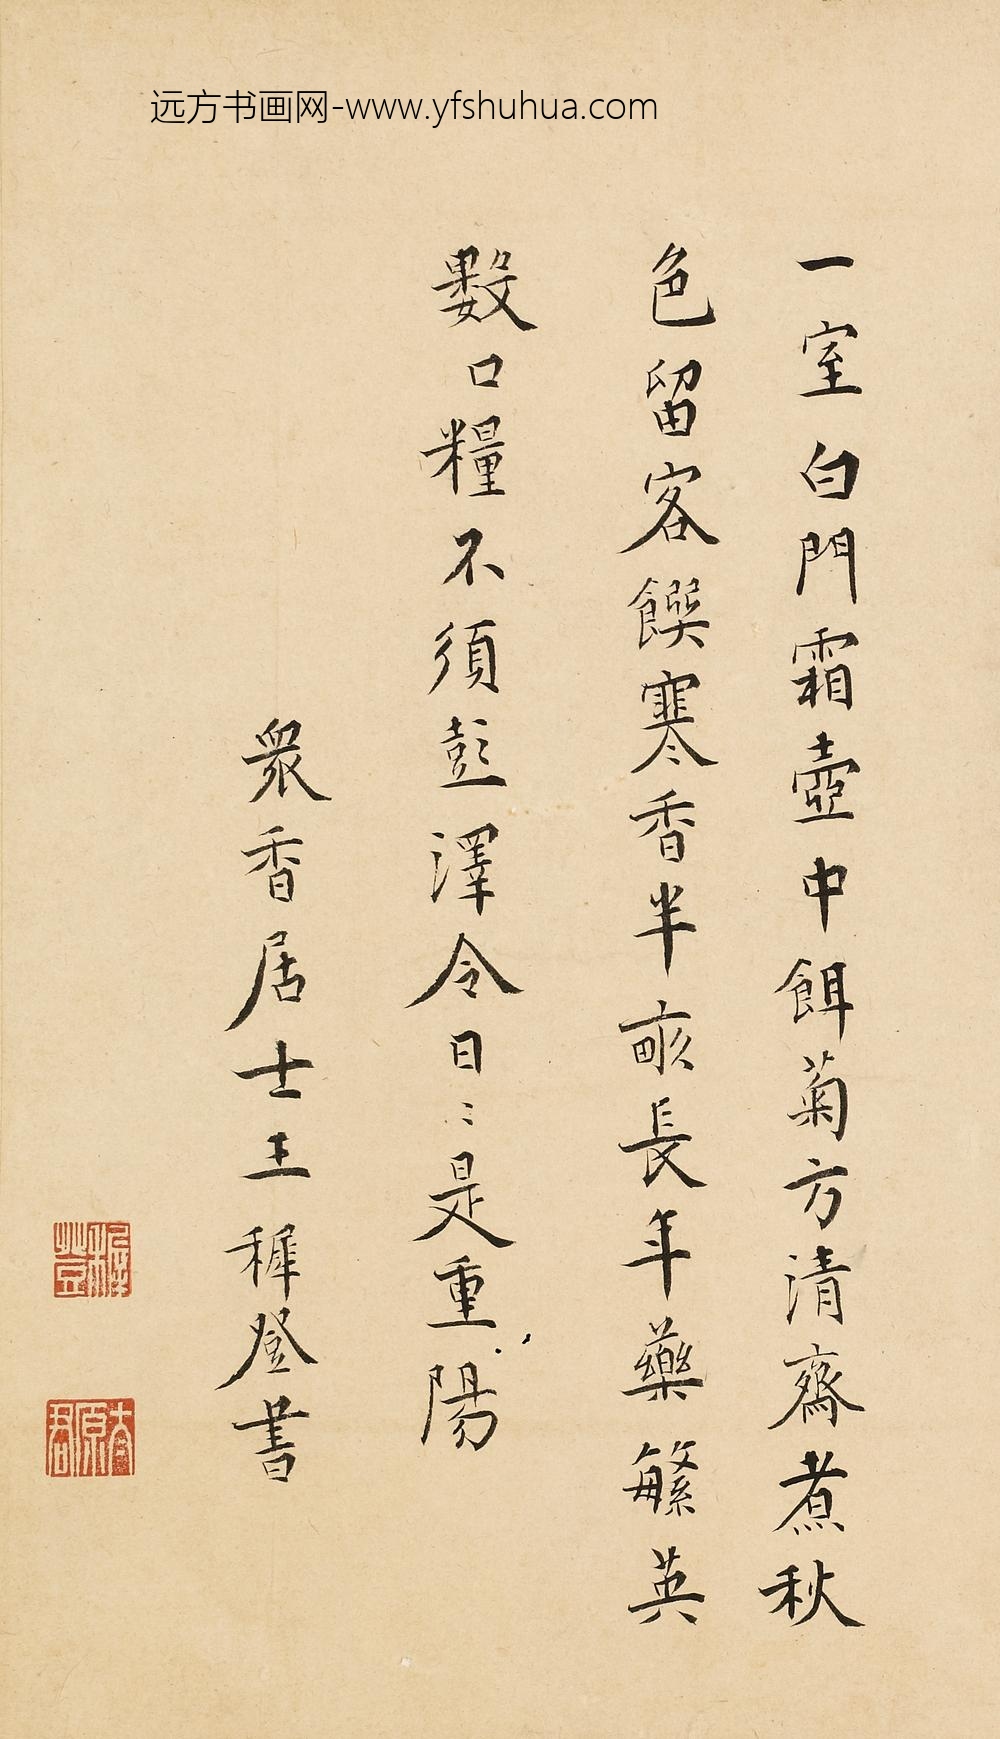 远方书画网-www.yfshuhua.com
一室白門霜壺中餌菊方清齋煮秋
色留客饌寒香半畝長年藥繁英
數口糧不須彭澤令日〻是重陽
衆香居士王穉登書
穉登
太原王君